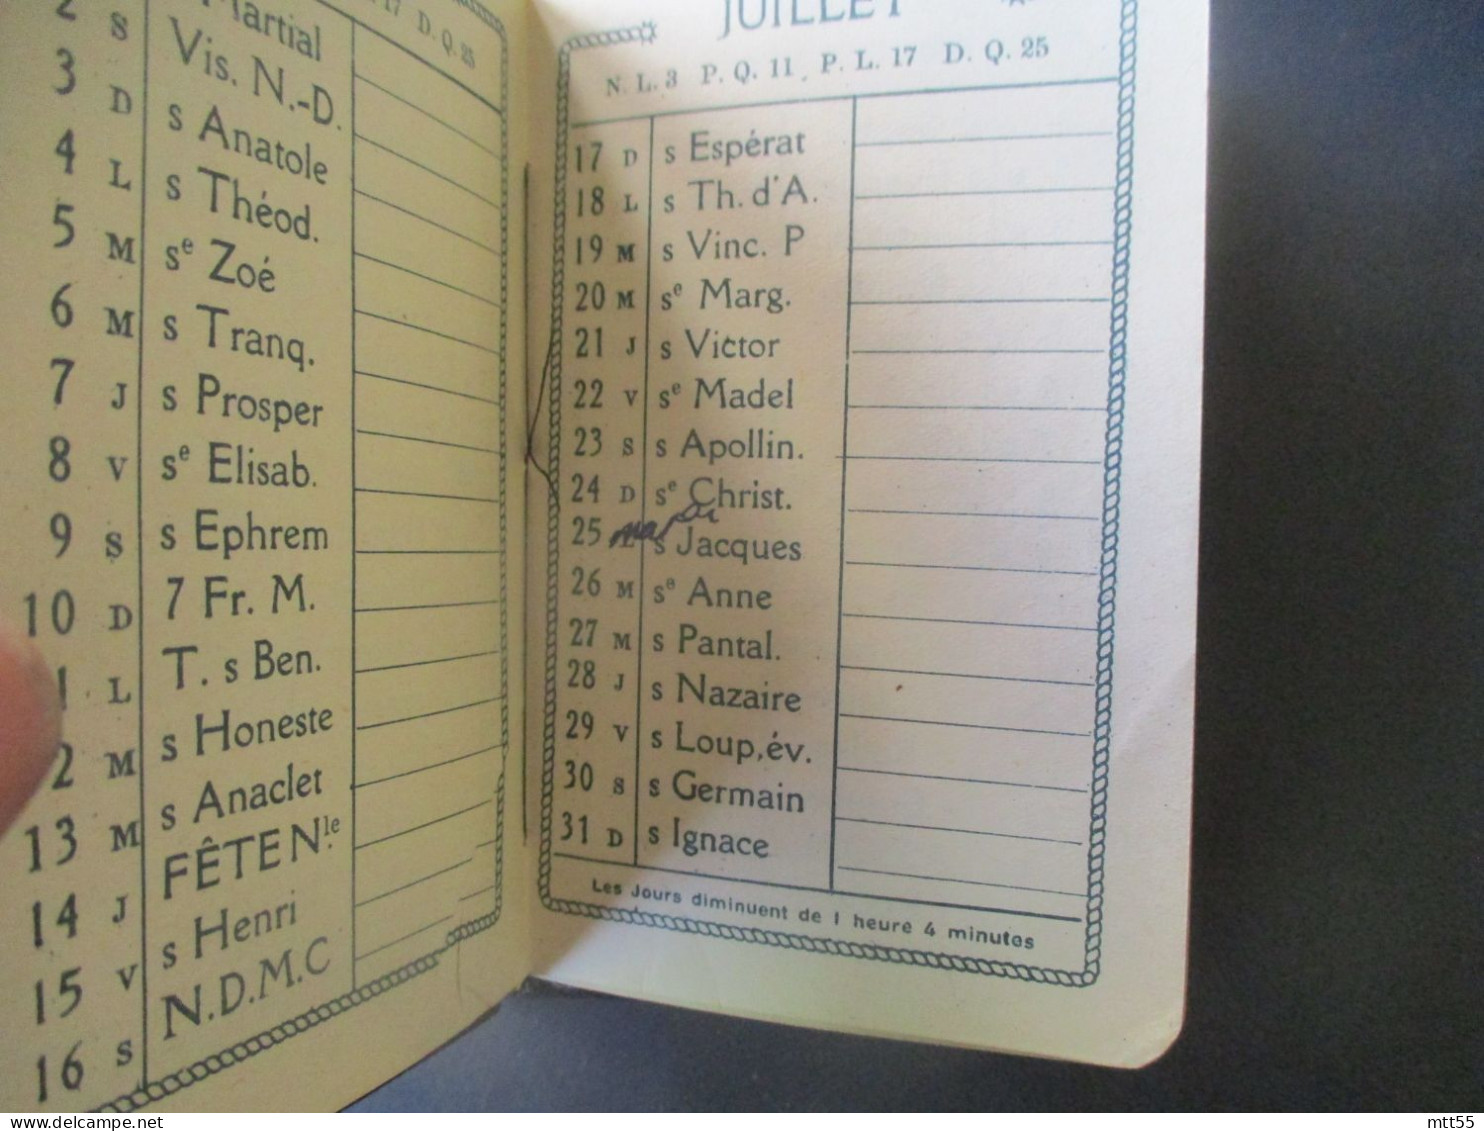 17 D. Q. 25
2 S Martial
3 D Vis. N.-D.
4 L s Anatole
5 M s Théod.
6 M sᵉ Zoé
7 J s Tranq.
8 V s Prosper
9 S sᵉ Elisab.
10 D s Ephrem
L 7 Fr. M.
2 M T. s Ben.
13 M s Honeste
14 J s Anaclet
15 V FÊTE Nˡᵉ.
16 S s Henri
N.D.M.C
JUILLET
N. L. 3 P. Q. 11 P. L. 17 D. Q. 25
17 D s Espérat
18 L s Th. d'A.
19 M s Vinc. P
20 M sᵉ Marg.
21 J s Victor
22 V sᵉ Madel
23 S s Apollin.
24 D sᵉ Christ.
25 L mardi s Jacques
26 M sᵉ Anne
27 M s Pantal.
28 J s Nazaire
29 V s Loup, év.
30 S s Germain
31 D s Ignace
Les Jours diminuent de 1 heure 4 minutes
delcampe.net
mtt55